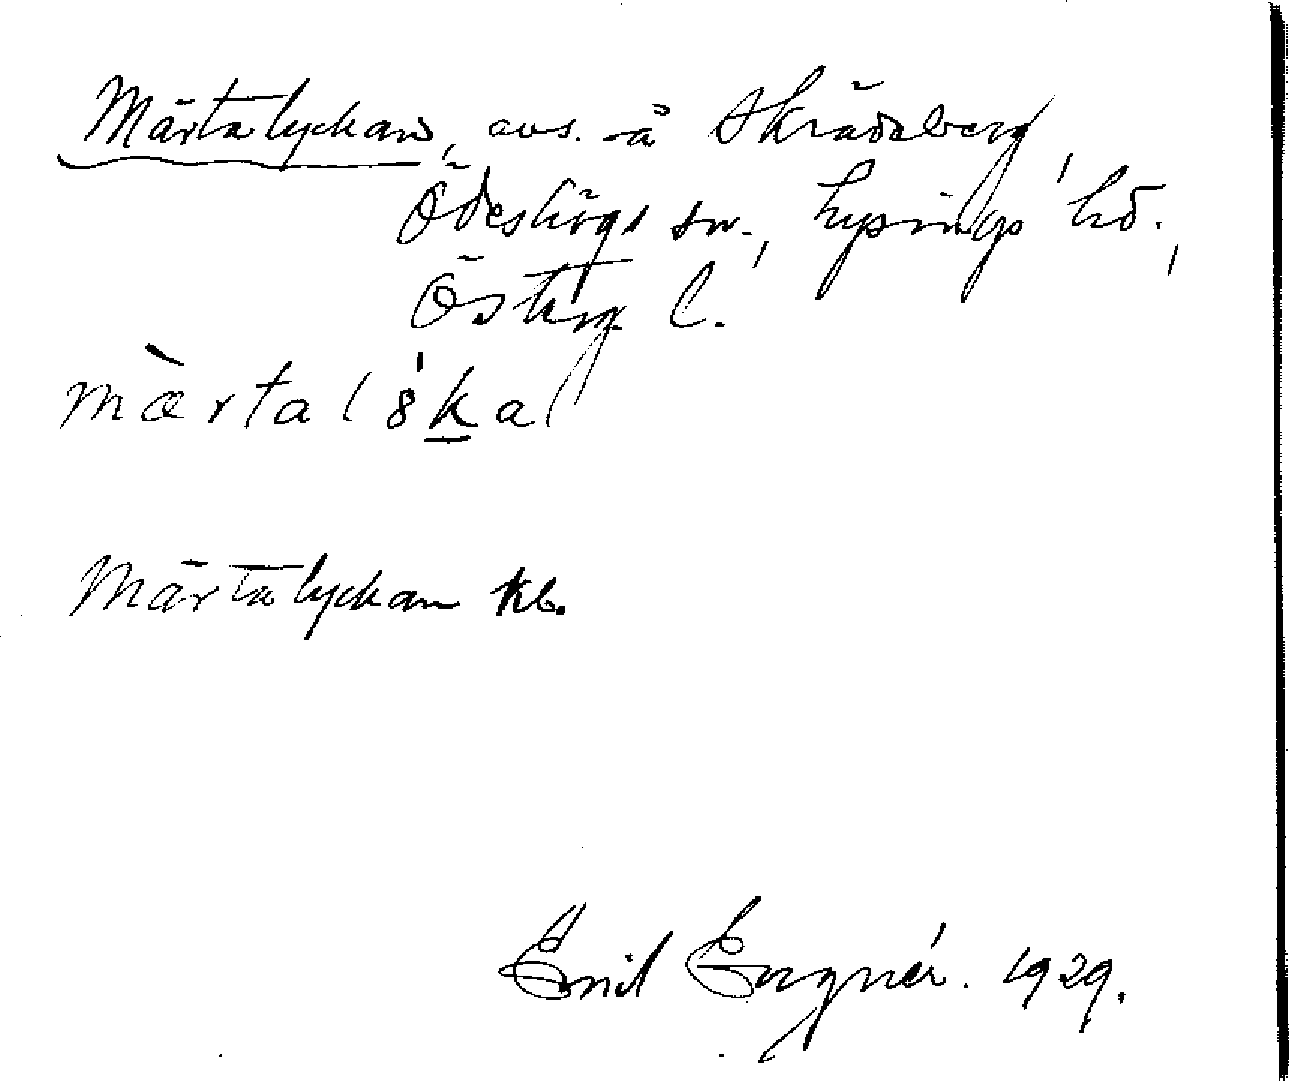 Märtalyckan, avs. å Skrädeberg,
Ödeshögs sn., Lysings hd.,
Österg. l.
mæ̀rtal8́k̲al
Märtalyckan kb.
Emil Engnér. 1929.